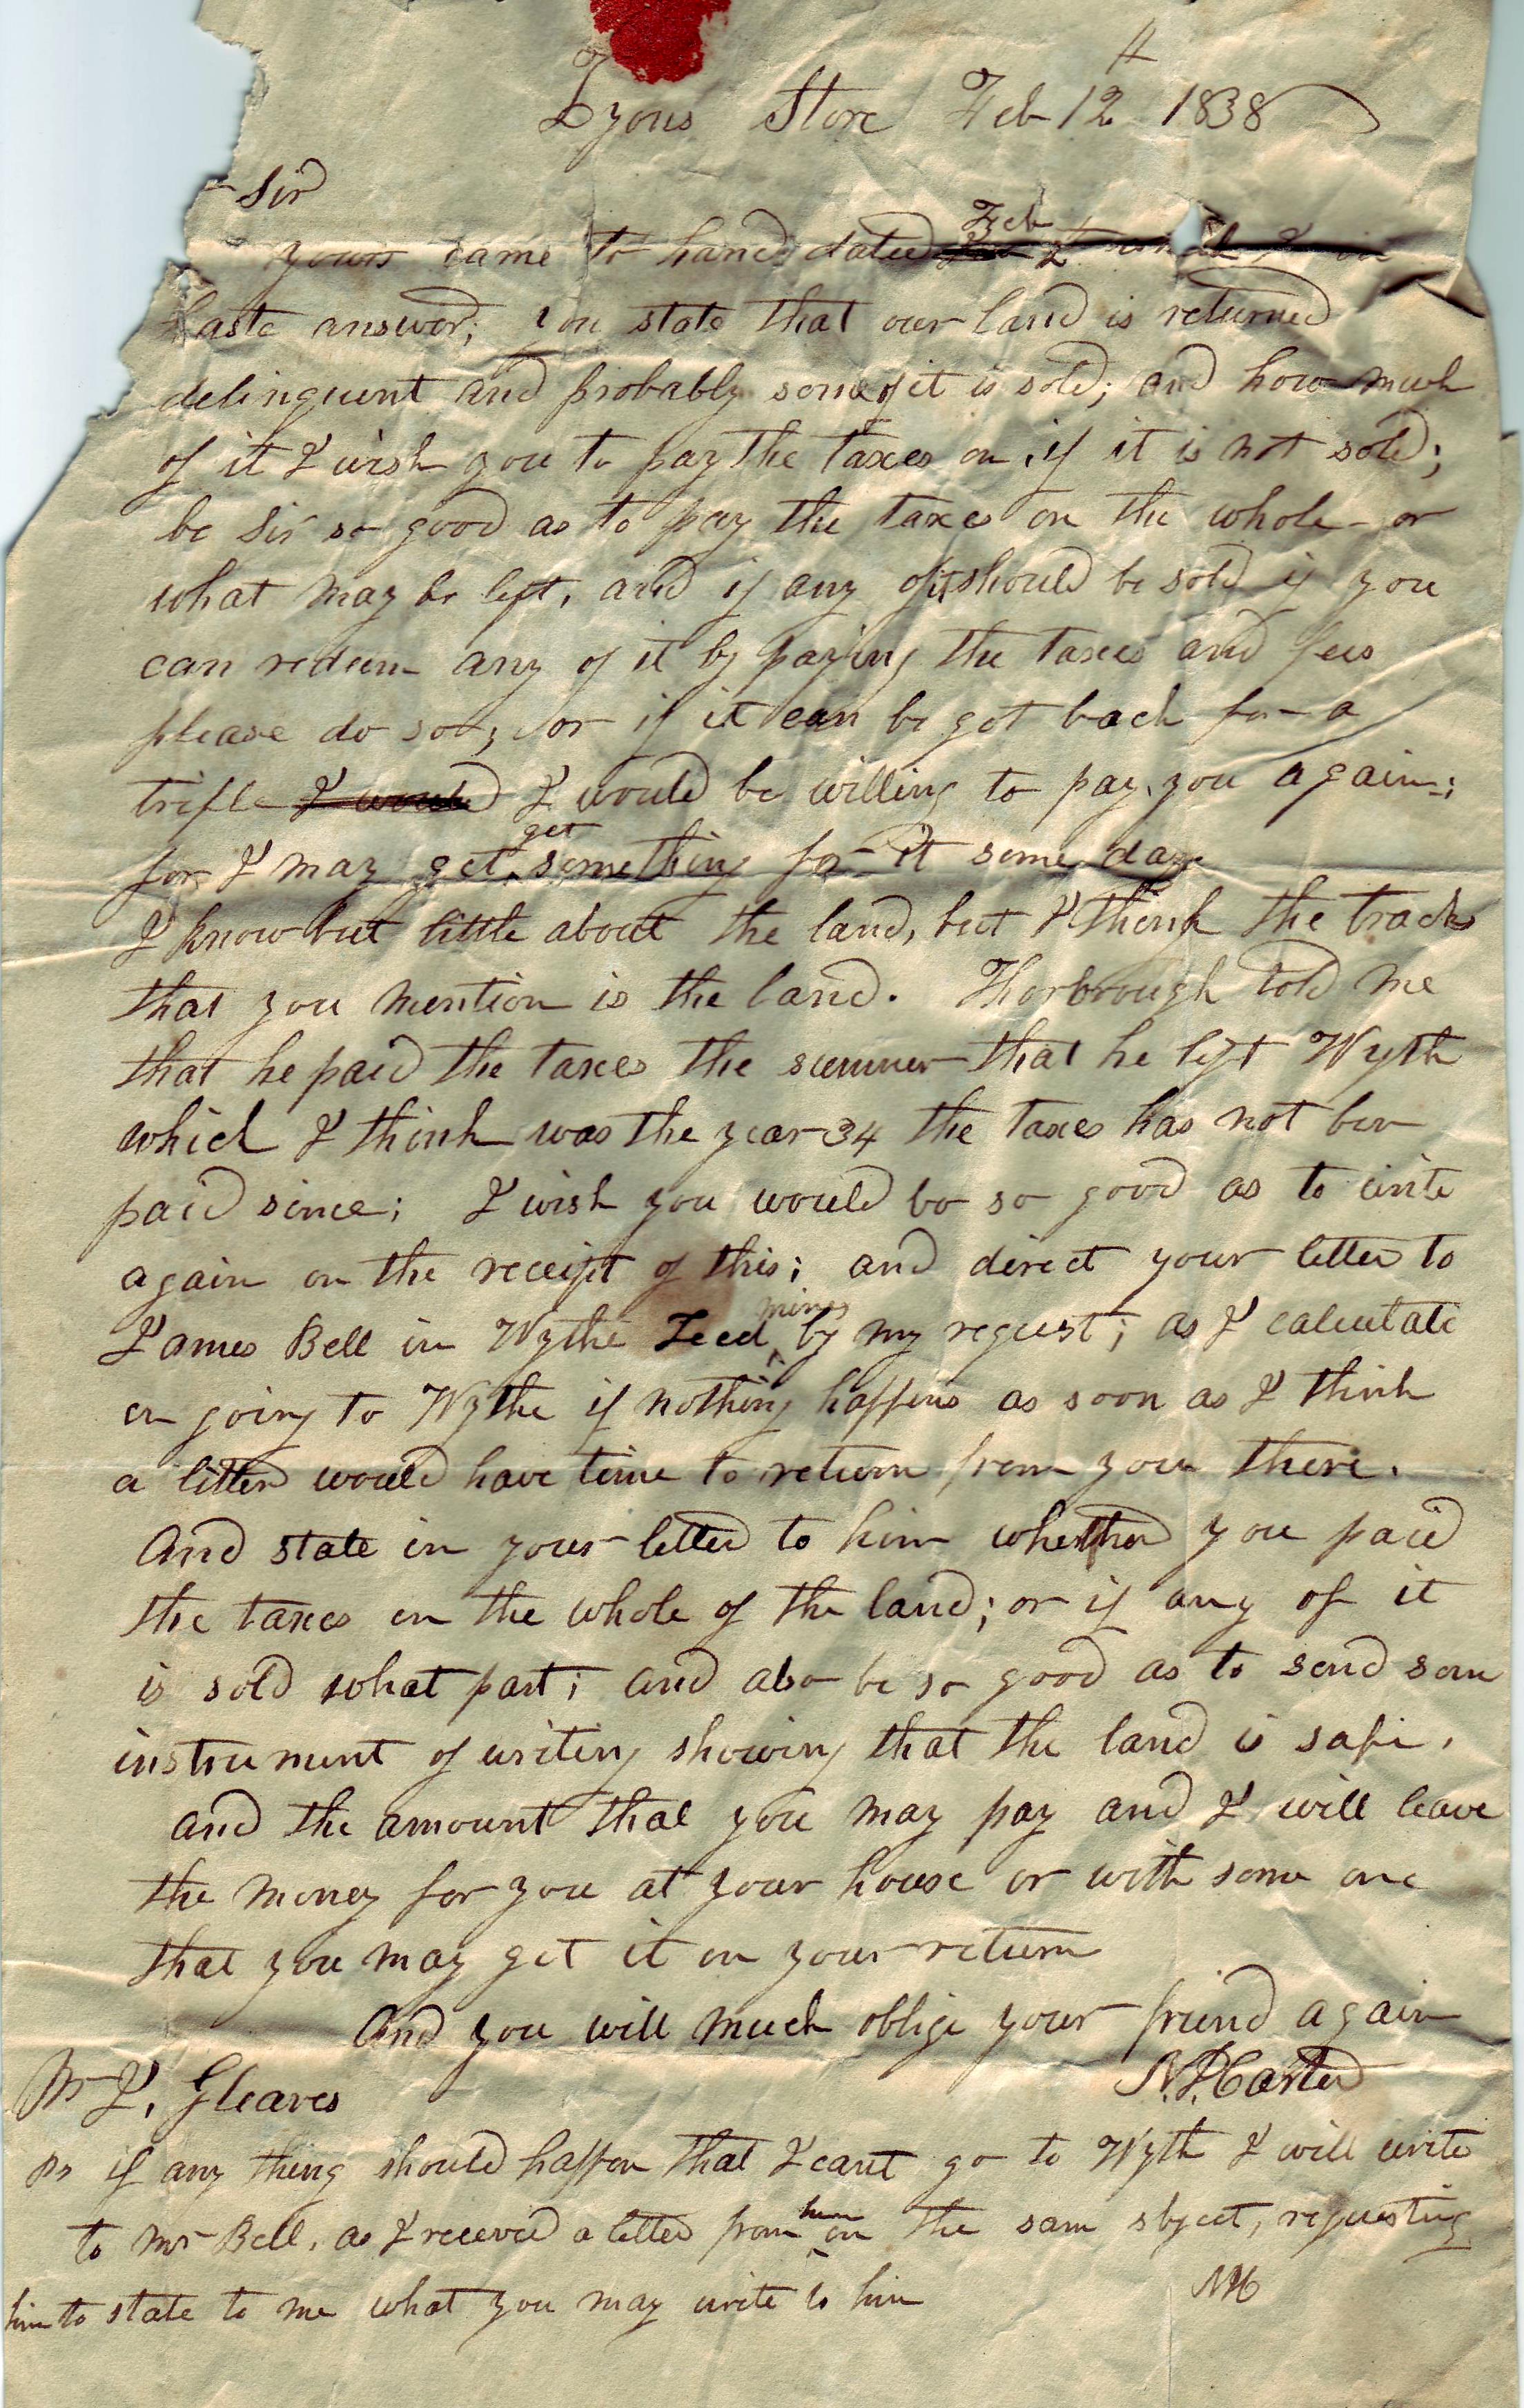 Lyons Store Feb 12th 1838
Sir
yours came to hand dated Feb 2 which I in
haste answer; you state that our land is returned
delinquent and probably some of it is sold; and how much
of it I wish you to pay the taxes on, if it is not sold;
be Sir so good as to pay the taxes on the whole or
what may be left, and if any of it should be sold if you
can redeem any of it by paying the taxes and fees
please do so; or if it can be got back for a
trifle I would I would be willing to pay you again;
for I may get get something for it some day
I know but little about the land, but I think the tracks
that you mention is the land. Thorbrough told me
that he paid the taxes the summer that he left Wyth
which I think was the year 34 the taxes has not ben
paid since; I wish you would be so good as to write
again on the receipt of this; and direct your letter to
James Bell in Wythe Leed mines by my request; as I calculate
on going to Wythe if nothing happens as soon as I think
a letter would have time to return from you there.
And state in your letter to him whether you paid
the taxes on the whole of the land; or if any of it
is sold what part; and also be so good as to send som
instrument of writing showing that the land is safe,
and the amount that you may pay and I will leave
the money for you at your house or with some one
that you may get it on your return
And you will much oblige your friend again
Mr J. Gleaves
N.P. Carter
Ps if any thing should happen that I cant go to Wyth I will write
to Mr Bell, as I received a letter from him on the sam sbject, requesting
him to state to me what you may write to him